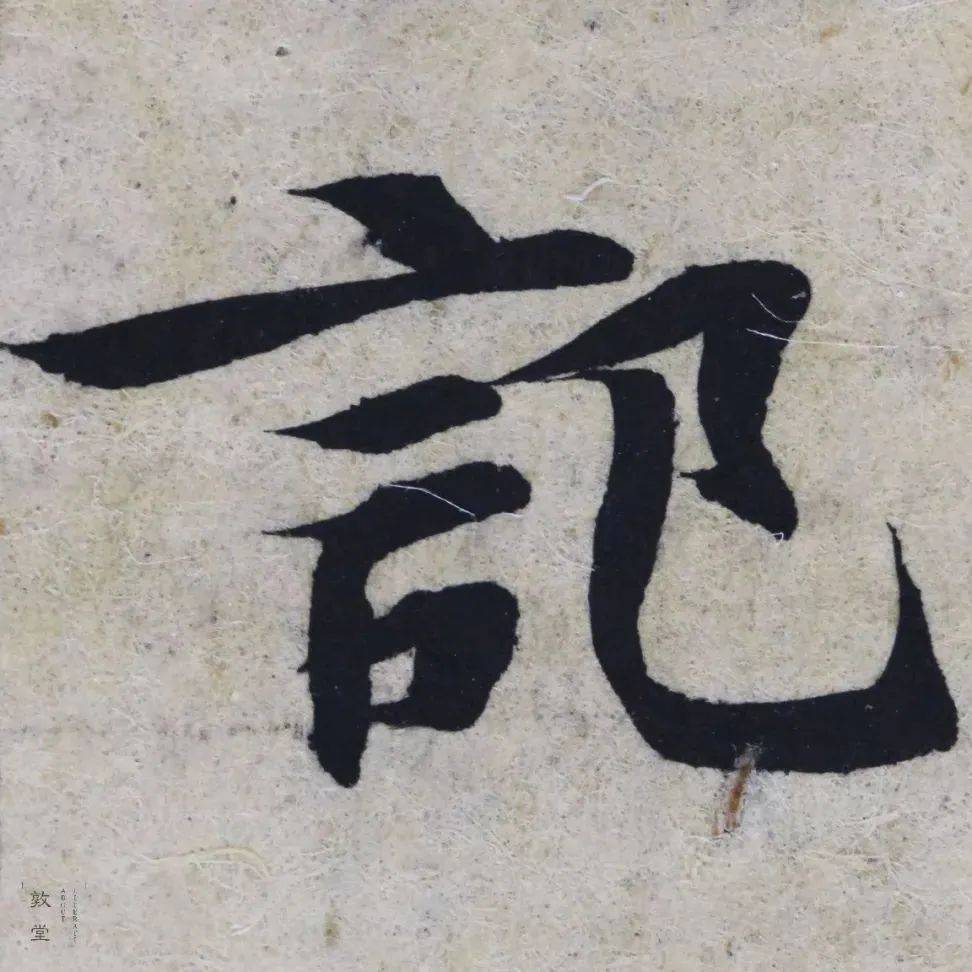 記
敦堂